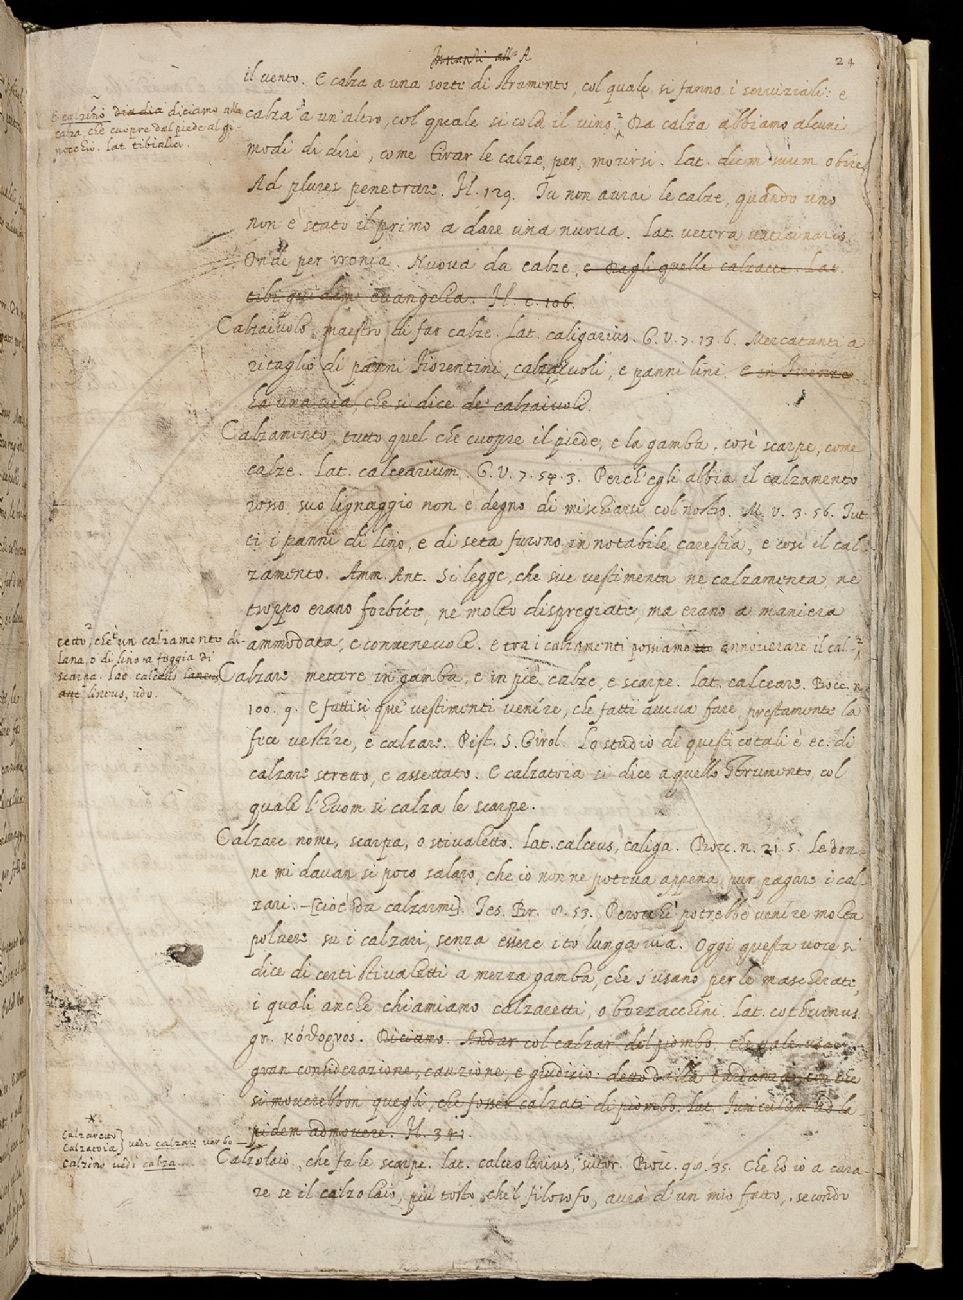 Innanzi all' A
24
il vento. E calza a una sorte di strumento, col quale si fanno i serviziali: e
E calzino diciamo alla
calza che cuopre dal piede al gi-
nocchio. lat. tibialia.
calza a un'altro, col quale si cola il vino. Da calza abbiamo alcuni
modi di dire, come tirar le calze, per, morirsi. Lat. diem suum obire
Ad plures penetrare. H. 129. Tu non aurai le calze, quando uno
non è stato il primo a dare una nuova. Lat. vetera vaticinaris.
Onde per ironia. Nuova da calze, e Dagli quelle calzacce. Lat.
tibi quidem evangelia. H. c. 106.
Calzaiuolo, maestro di far calze. Lat. caligarius. G. V. 7. 13. 6. Mercatanti a
ritaglio di panni Fiorentini, calzaiuoli, e panni lini. e in Firenze
ha una via, che si dice de' calzaiuoli.
Calzamento, tutto quel che cuopre il piede, e la gamba, così scarpe, come
calze. Lat. calcearium. G. V. 7. 54. 3. Perch'egli abbia il calzamento
rosso, suo lignaggio non è degno di mischiarsi col nostro. M. V. 3. 56. Tut-
ti i panni di lino, e di seta furono in notabile carestia, e così il cal-
zamento. Amm. Ant. Si legge, che sue vestimenta ne calzamenta ne
troppo erano forbite, ne molto dispregiate, ma erano a maniera
ammodata, e convenevole. e tra i calzamenti possiamo annoverare il cal-
cetto, che è un calzamento di
lana, o di lino a foggia di
scarpa. Lat. calceus laneus,
aut linteus, udo.
Calzare mettere in gamba, e in piè calze, e scarpe. Lat. calceare. Bocc. n.
100. 9. E fattisi que' vestimenti venire, che fatti aveva fare, prestamente la
fece vestire, e calzare. Pist. S. Girol. Lo studio di questi cotali è ec. di
calzare stretto, e assettato. E calzatoia si dice a quello strumento, col
quale l'huom si calza le scarpe.
Calzare nome, scarpa, o stivaletto. Lat. calceus, caliga. Bocc. n. 21. 5. Le don-
ne mi davan sì poco salaro, che io non ne poteva appena pur pagare i cal-
zari. [cioè da calzarmi]. Tes. Br. 8. 53. Perocch'e' potrebbe venire molta
polvere su i calzari, senza essere ito lunga via. Oggi questa voce si
dice di certi stivaletti a mezza gamba, che s'usano per le mascherate,
i quali anche chiamiamo calzaretti, o borzacchini. Lat. cothurnus.
gr. κόθορνος. Diciamo. Andar col calzar del piombo, che vale usar
gran considerazione, cauzione, e giudizio: detto dalla tardanza, con che
si moverebbon quegli, che fosser calzati di piombo. Lat.
pidem admovere. H. 341.
Calzaretto
Calzatoia } vedi calzare verbo
Calzino vedi calza
Calzolaio, che fa le scarpe. Lat. calceolarius, sutor. Bocc. 90. 35. Che ho io a cura-
re se il calzolaio, più tosto, che'l filosofo, avrà d'un mio fatto, secondo